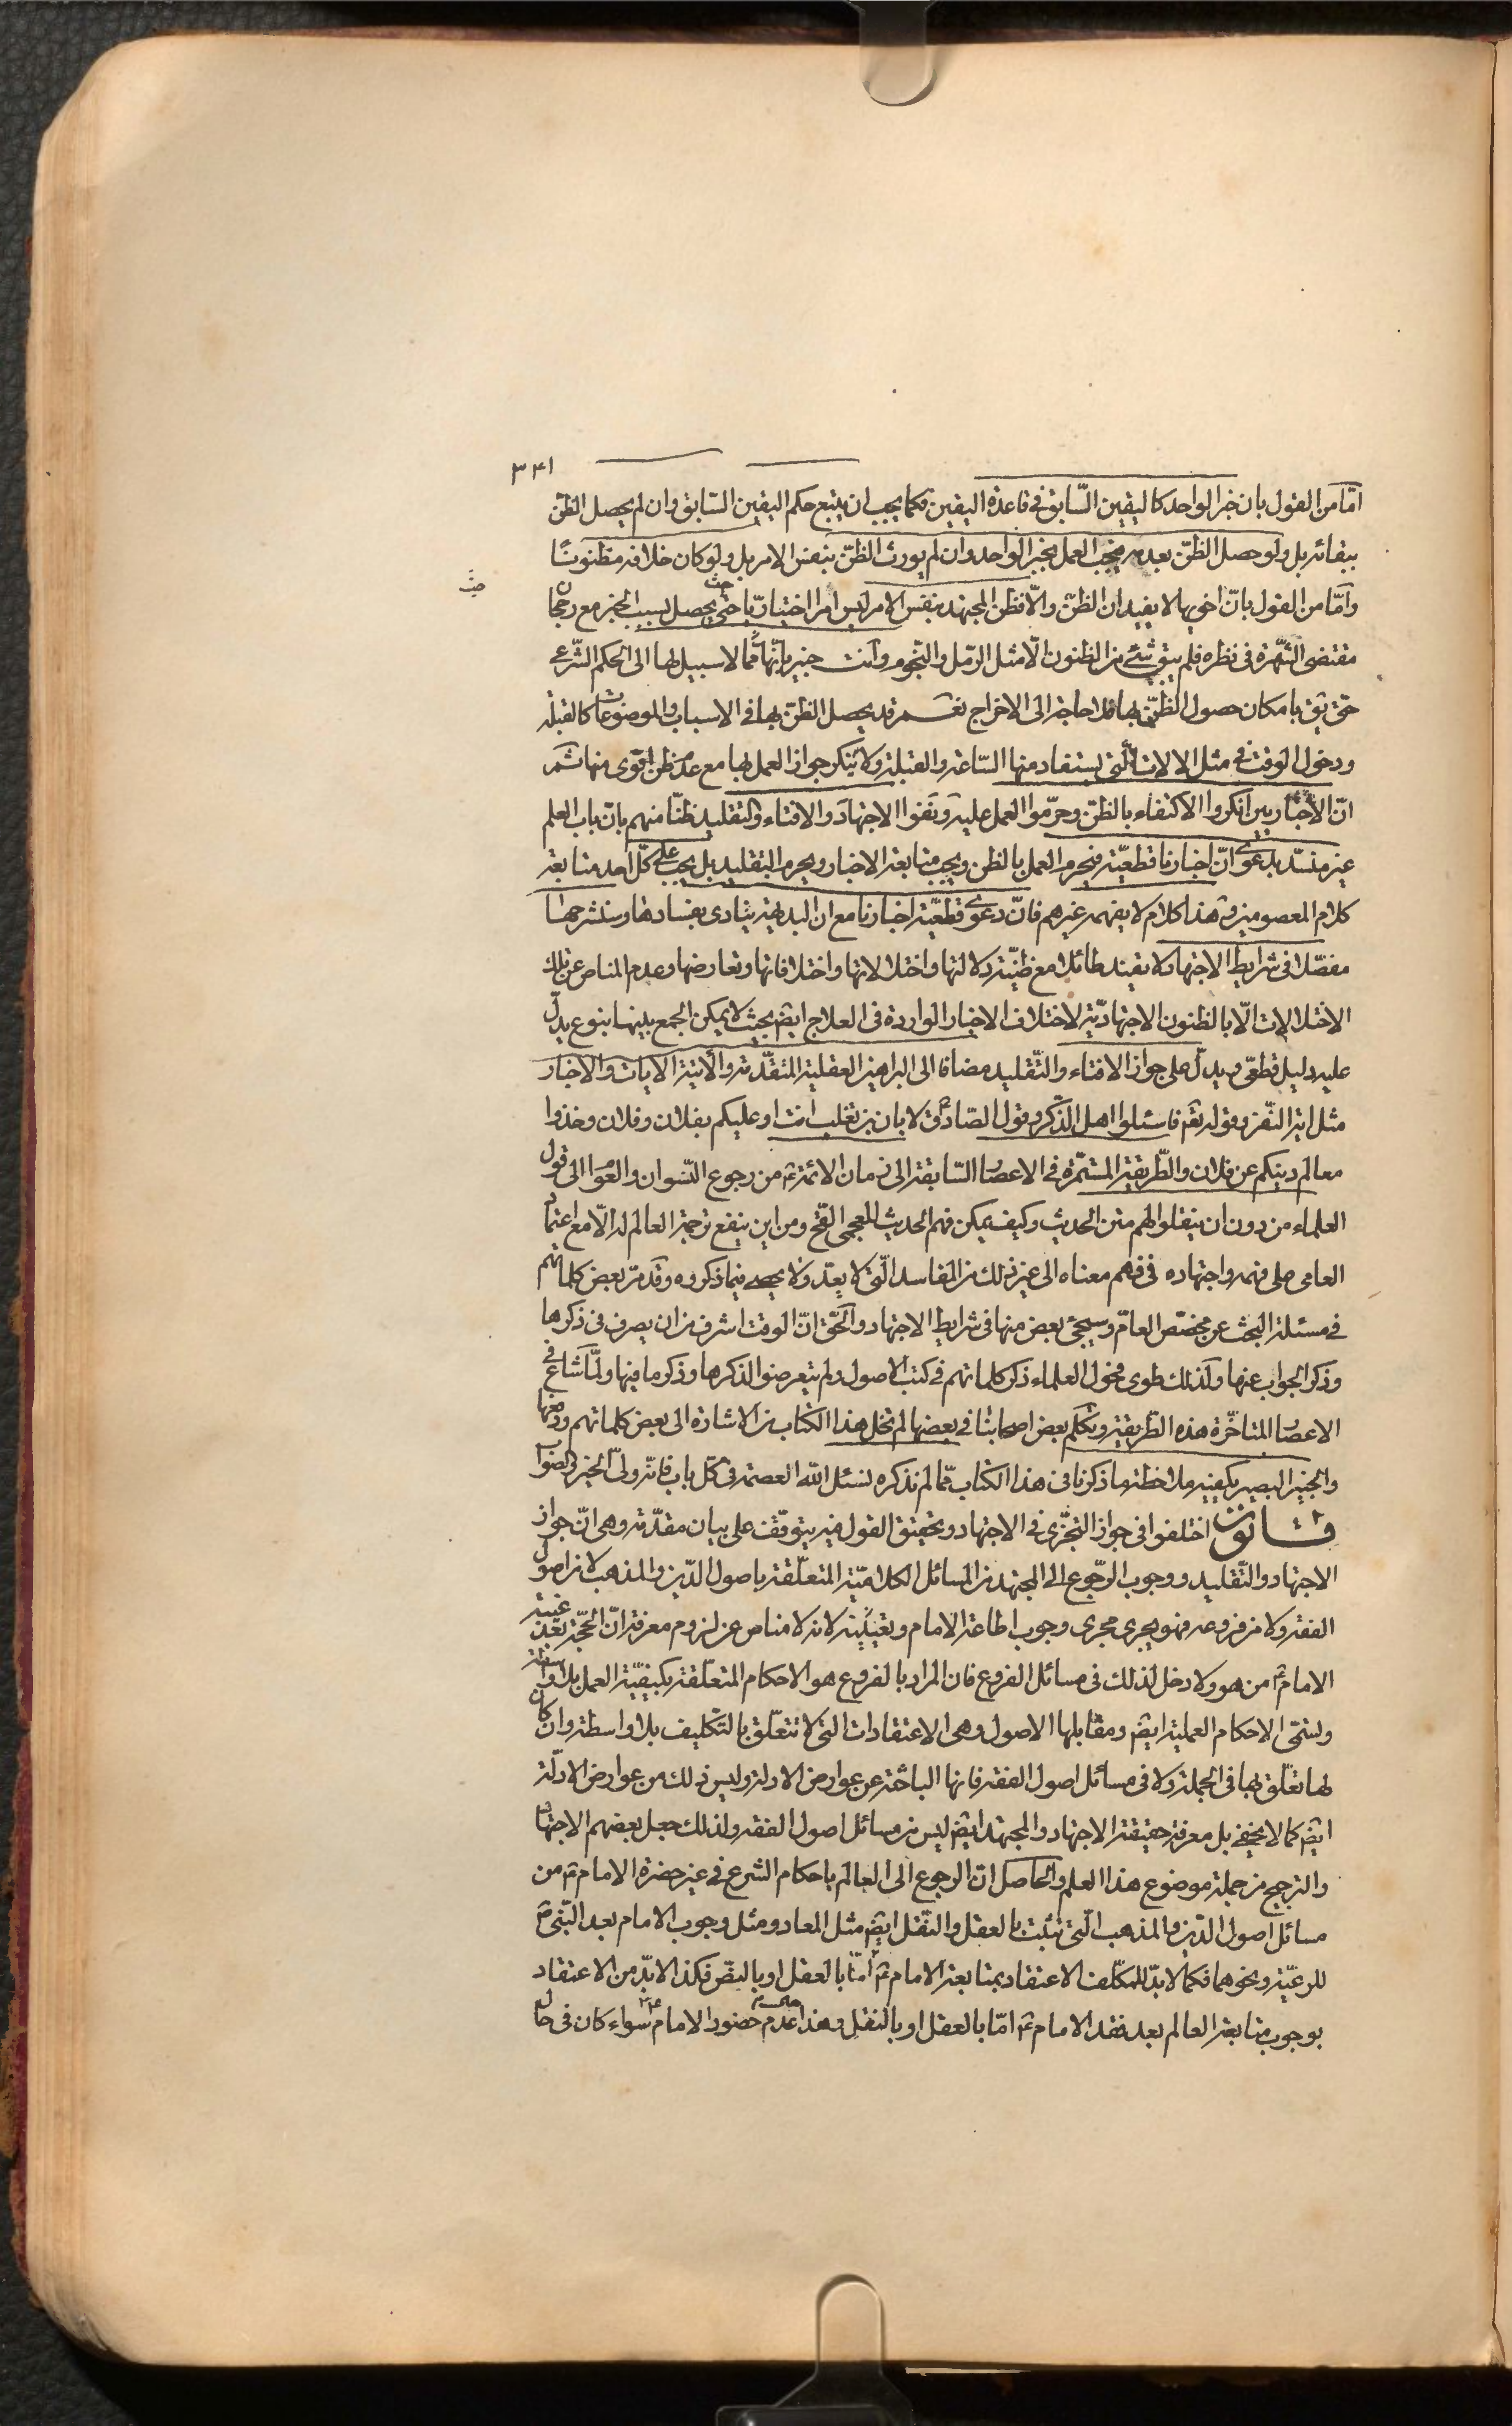 ٣٤١
امّا من القول بان خبر الواحد كاليقين السّابق فى قاعدة اليقين فكما يجب ان يتبع حكم اليقين السّابق وان لم يحصل الظن
ببقائه بل ولو حصل الظنّ بعدمه فيجب العمل بخبر الواحد وان لم يورث الظنّ بنفس الامر بل ولو كان خلافه مظنونًا
وامّا من القول بانّ اخويها لا يفيدان الظنّ والّا فظن المجتهد بنفس الامر ليس امرا اختياريّا حتى يحصل بسبب الخبر مع رجحان
مقتضى الشّهرة فى نظره فلم يبق شئ من الظنون الّا مثل الرّمل والنّجوم وانت خبير بانّها ممّا لا سبيل لها الى الحكم الشّرعى
حتى يق بامكان حصول الظنّ بها فلا حاجة الى الاخراج نعم قد يحصل الظنّ بها فى الاسباب والموضوعات كالقبلة
ودخول الوقت فى مثل الالات الّتى يستفاد منها السّاعة والقبلة ولا ينكر جواز العمل بها مع عدم ظن اقوى منها ثم
انّ الاخباريين انكروا الاكتفاء بالظنّ وحرّموا العمل عليه ونفوا الاجتهاد والافتاء والتقليد ظنّا منهم بانّ باب العلم
غير منسدّ بدعوى انّ اخبارنا قطعيّة فيحرم العمل بالظن ويجب متابعة الاخبار ويحرم التقليد بل يجب على كلّ احد متابعة
كلام المعصومين وهذا كلام لا يفهمه غيرهم فانّ دعوى قطعيّة اخبارنا مع ان البديهة ينادى بفسادها وسنشرحها
مفصّلا فى شرايط الاجتهاد لا يفيد طائلا مع ظنيّة دلالتها واختلالاتها واختلافاتها وتعارضها وعدم المناص عن تلك
الاختلالات الّا بالظنون الاجتهاديّة لاختلاف الاخبار الواردة فى العلاج ايضً بحيث لا يمكن الجمع بينها بنوع يدلّ
عليه دليل قطعىّ ويدلّ على جواز الافتاء والتّقليد مضافا الى البراهين العقلية المتقدّمة والاتية الايات والاخبار
مثل اية النّفر وقوله تعم فاسئلوا اهل الذّكر وقول الصّادق لابان بن تغلب افت او عليكم بفلان وفلان وخذوا
معالم دينكم عن فلان والطّريقة المستمّرة فى الاعصار السّابقة الى زمان الائمّة من رجوع النّسوان والعوام الى قول
العلماء من دون ان ينقلوا لهم متن الحديث وكيف يمكن فهم الحديث للعجمى القحّ ومن اين ينفع ترجمة العالم له الّا مع اعتماد
العامى على فهمه واجتهاده فى فهم معناه الى غير ذلك من المفاسد الّتى لا يعدّ ولا يحصى فيما ذكروه وقد مرّ بعض كلماتهم
فى مسئلة البحث عن مخصّص العامّ وسيجئ بعض منها فى شرايط الاجتهاد والحقّ انّ الوقت اشرف من ان يصرف فى ذكرها
وذكر الجواب عنها ولذلك طوى فحول العلماء ذكر كلماتهم فى كتب الاصول ولم يتعرضوا لذكرها وذكر ما فيها ولمّا شاع فى
الاعصار المتاخّرة هذه الطريقة وتكلّم بعض اصحابنا فى بعضها لم نخل هذا الكتاب من الاشارة الى بعض كلماتهم ودفعها
والخبير البصير يكفيه ملاحظة ما ذكرنا فى هذا الكتاب ممّا لم نذكره نسئل اللّه العصمة فى كلّ باب فانّه ولىّ الخير والصواب
قانون اختلفوا فى جواز التجزّى فى الاجتهاد وتحقيق القول فيه يتوقّف على بيان مقدّمة وهى انّ جواز
الاجتهاد والتّقليد ووجوب الرّجوع الى المجتهد من المسائل الكلاميّة المتعلّقة باصول الدّين والمذهب لا من اصول
الفقه ولا من فروعه فهو يجرى مجرى وجوب اطاعة الامام وتعيينه لانه لا مناص عن لزوم معرفة انّ الحجّة بعد غيبة
الامام من هو ولا دخل لذلك فى مسائل الفروع فان المراد بالفروع هو الاحكام المتعلّقة بكيفيّة العمل بلا واسطة
وتسمّى الاحكام العملية ايضً ومقابلها الاصول وهى الاعتقادات التى لا تتعلّق بالتكليف بلا واسطة وان كان
لها تعلّق بها فى الجملة ولا فى مسائل اصول الفقه فانها الباحثة عن عوارض الادلة وليس ذلك من عوارض الادلّة
ايضً كما لا يخفى بل معرفة حقيقة الاجتهاد والمجتهد ايضً ليس من مسائل اصول الفقه ولذلك جعل بعضهم الاجتهاد
والترجيح من جملة موضوع هذا العلم والحاصل انّ الرجوع الى العالم باحكام الشرع فى غير حضرة الامام من
مسائل اصول الدّين والمذهب الّتى تثبت بالعقل والنّقل ايضً مثل المعاد ومثل وجوب الامام بعد النّبىّ
للرعيّة ونحوهما فكما لا بدّ للمكلّف الاعتقاد بمتابعة الامام امّا بالعقل او بالنصّ فكذا لا بدّ من الاعتقاد
بوجوب متابعة العالم بعد فقد الامام امّا بالعقل او بالنقل وهذا عدم حضور الامام سواء كان فى حال